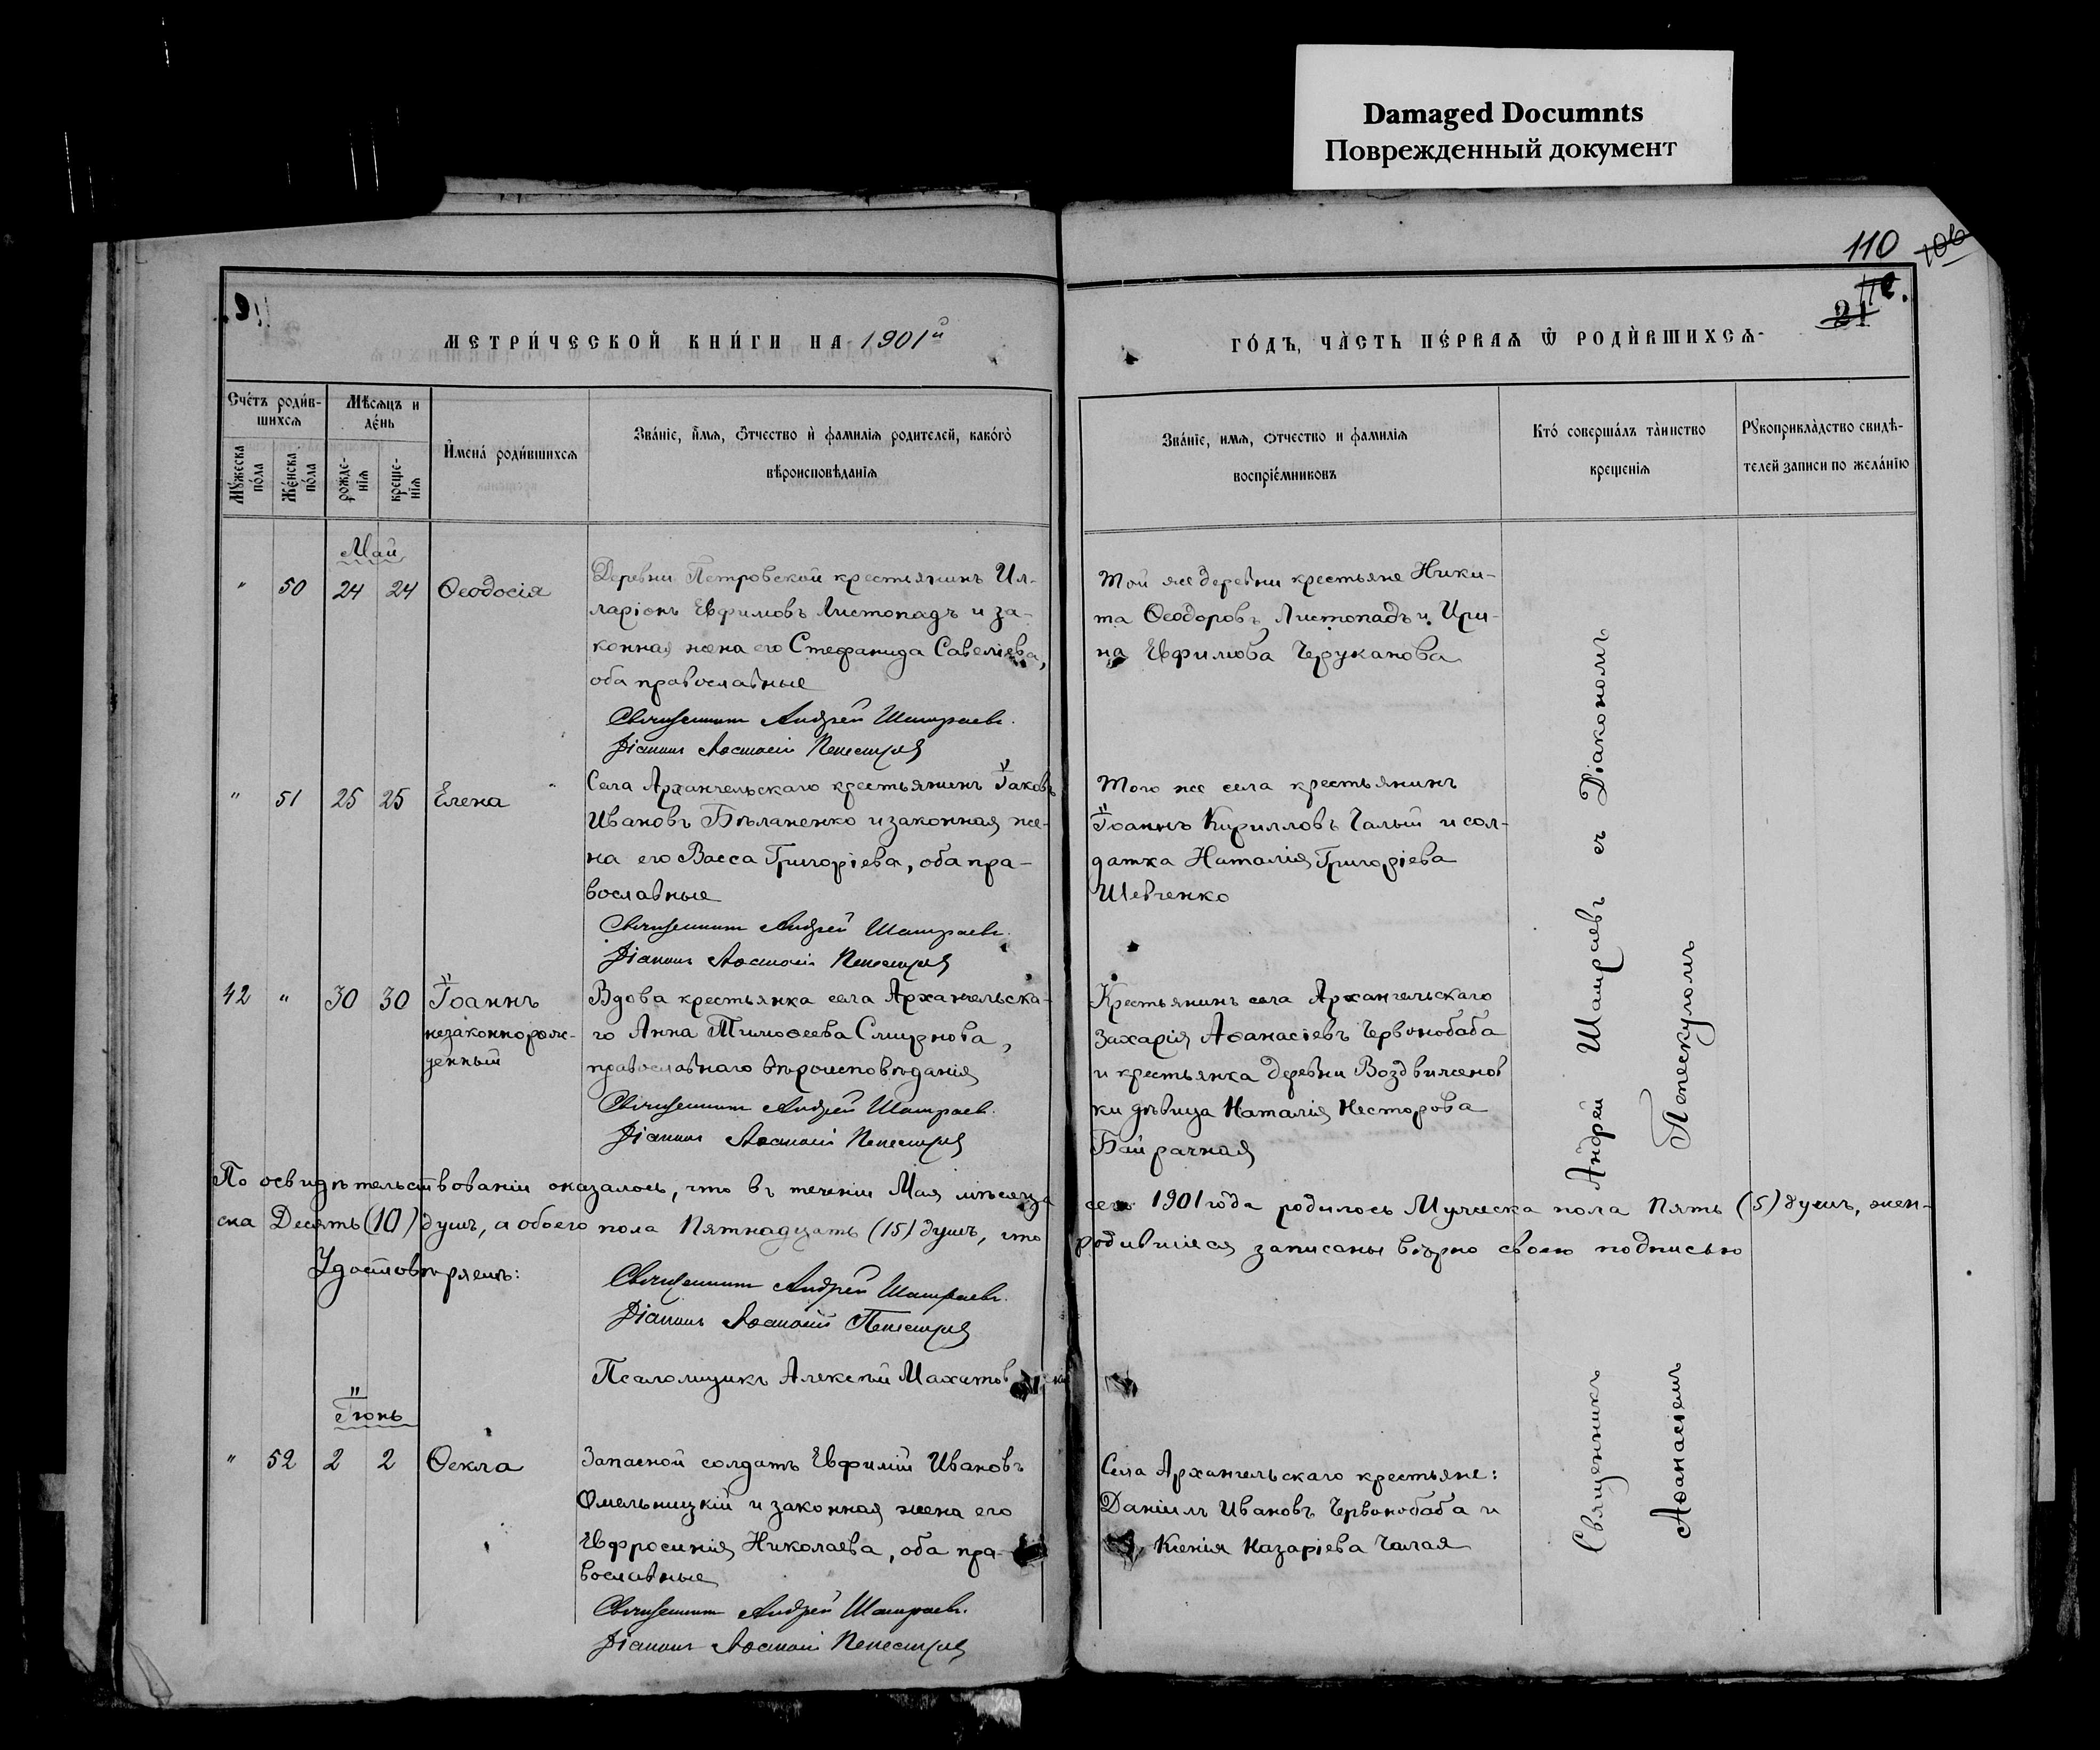 Damaged Documnts
Поврежденный документ
110 106
110.
21
МЕТРИ́ЧЕСКОЙ КНИ́ГИ НА 1901й
ГО́ДЪ, ЧА̀СТЬ ПЕ́РВАѦ Ѿ РОДЍВШИХСѦ
Сче́тъ роди́в-
шихсѧ
Мѣ́сѧцъ и
де́нь
Мꙋ́жеска
по́ла
Же́нска
по́ла
рожде-
нїѧ
креще-
нїѧ
И҆мена̀ роди́вшихсѧ
Зва́нїе, и҆́мѧ, ѻ҆́тчество и҆ фамилїѧ родителей, како́гѡ
вѣроисповѣ́данїѧ
Зва́нїе, имѧ, ѻтчество и фамилїѧ
воспрїе́мниковъ
Кто́ соверша́лъ та̀инство
крещенїѧ
Рꙋкоприкла̀дство свидѣ̀-
телей записи по жела́нїю
Май
" 50 24 24 Ѳеодосія
Деревни Петровской крестьянинъ Ил-
ларіонъ Евфимовъ Листопадъ и за-
конная жена его Стефанида Савеліева,
оба православные
Священникъ Андрей Шатраевъ.
Діаконъ Аѳанасій Пепескулъ
Той же деревни крестьяне Ники-
та Ѳеодоровъ Листопадъ и Ири-
на Евфимова Черуканова
" 51 25 25 Елена
Села Архангельскаго крестьянинъ Іаковъ
Ивановъ Бѣланенко и законная же-
на его Васса Григоріева, оба пра-
вославные
Священникъ Андрей Шатраевъ.
Діаконъ Аѳанасій Пепескулъ
Того же села крестьянинъ
Іоаннъ Кирилловъ Чалый и сол-
датка Наталія Григоріева
Шевченко
42 " 30 30 Іоаннъ
незаконнорож-
денный
Вдова крестьянка села Архангельска-
го Анна Тимоѳеева Смирнова,
православнаго вѣроисповѣданія
Священникъ Андрей Шатраевъ.
Діаконъ Аѳанасій Пепескулъ
Крестьянинъ села Архангельскаго
Захарія Аѳанасіевъ Червонобаба
и крестьянка деревни Воздвиженов
ки дѣвица Наталія Несторова
Байрачная
По освидѣтельствованіи оказалось, что въ теченіи Мая мѣсяца сего 1901 года родилось Мужеска пола Пять (5) душъ, жен-
ска Десять (10) душъ, а обоего пола Пятнадцать (15) душъ, что родившіеся записаны вѣрно своею подписью
Удостовѣряемъ:
Священникъ Андрей Шатраевъ.
Діаконъ Аѳанасій Пепескулъ
Псаломщикъ Алексѣй
Іюнь
" 52 2 2 Ѳекла
Запасной солдатъ Евфимій Ивановъ
Омельницкій и законная жена его
Евфросинія Николаева, оба пра-
вославные
Священникъ Андрей Шатраевъ.
Діаконъ Аѳанасій Пепескулъ
Села Архангельскаго крестьяне:
Даніилъ Ивановъ Червонобаба и
Ксенія Назаріева Чалая
Священникъ Андрей Шатраевъ съ Діакономъ
Аѳанасіемъ Пепескуломъ